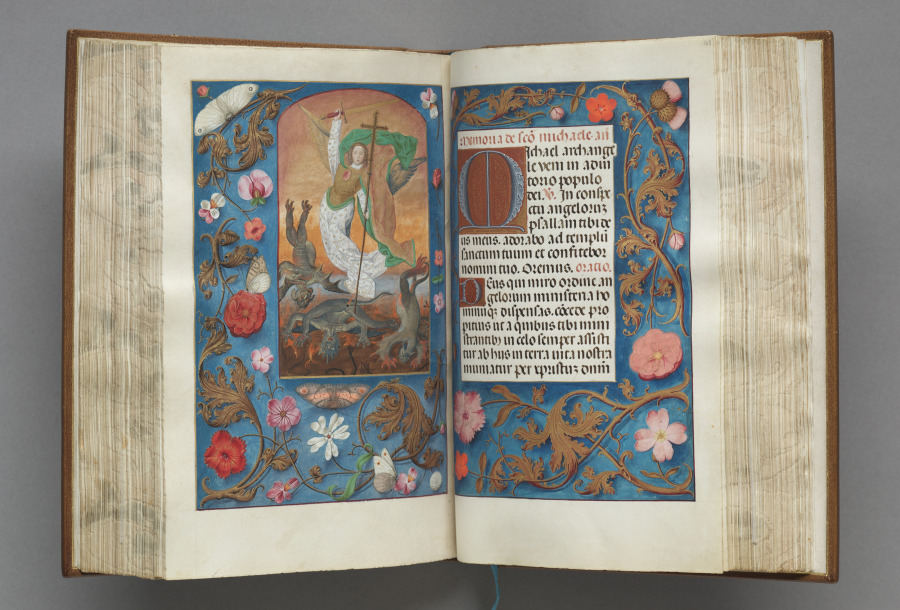 Memoria de scō michaele an
Michael archange
le veni in adiu
torio populo
dei. V. In conspe
ctu angelorum
psallam tibi de
us meus. adorabo ad templū
sanctum tuum et confitebor
nomini tuo. Oremus. oratio.
Deus qui miro ordine an
gelorum ministeria ho
minūqȝ dispensas. cōcede pro
pitius ut a quibus tibi mini
strantibȝ in celo semper assisti
tur ab hiis in terra vita nostra
muniatur per xpristum dnm̄